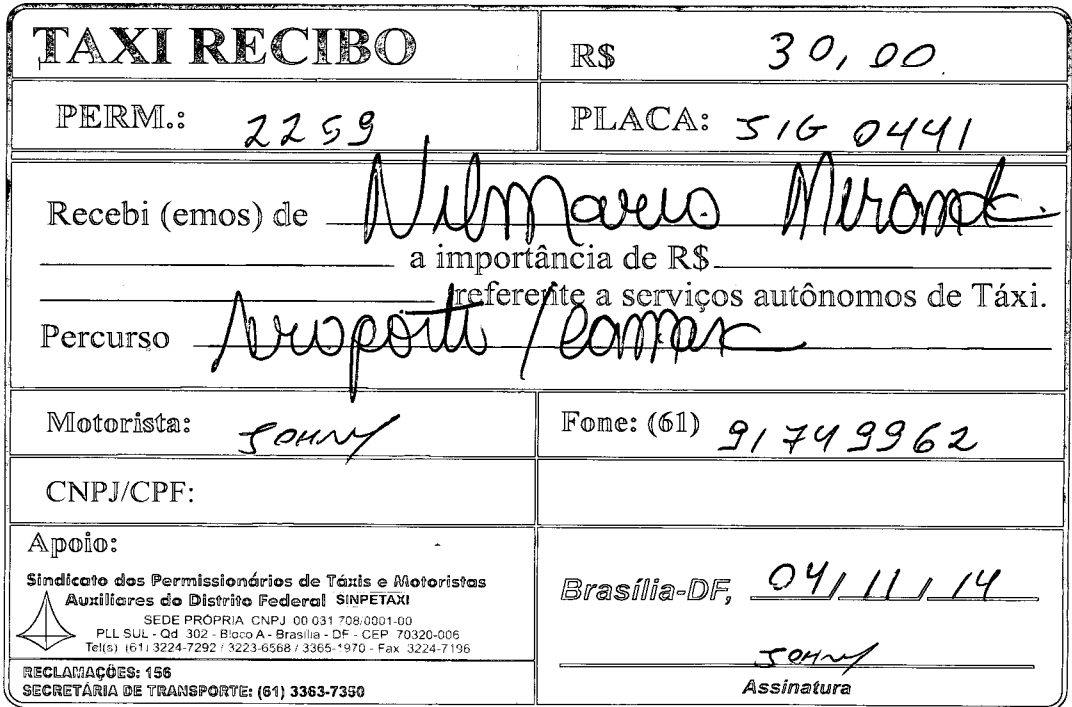 TAXI RECIBO
R$ 30,00
PERM.: 2259
PLACA: JIG 0441
Recebi (emos) de Nilmario Miranda
a importância de R$
referente a serviços autônomos de Táxi.
Percurso Aeroporto /
Motorista: JOHNY
Fone: (61) 91749962
CNPJ/CPF:
Apoio:
Sindicato dos Permissionários de Táxis e Motoristas
Auxiliares do Distrito Federal SINPETAXI
SEDE PRÓPRIA CNPJ 00 031 708/0001-00
PLL SUL - Qd 302 - Bloco A - Brasília - DF - CEP 70320-006
Tel(s) (61) 3224-7292 / 3223-6568 / 3365-1970 - Fax 3224-7196
RECLAMAÇÕES: 156
SECRETÁRIA DE TRANSPORTE: (61) 3363-7350
Brasília-DF, 04/11/14
JOHNY
Assinatura